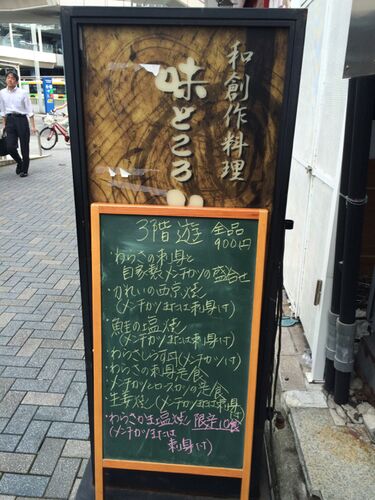 和創作料理
味ところ
3階 遊 全品
900円
・わらさの刺身と
自家製メンチカツの盛合せ
・かれいの西京焼
(メンチカツまたは刺身付)
・鮭の塩焼
(メンチカツまたは刺身付)
・わらさしらす丼(メンチカツ付)
・わらさの刺身定食
・メンチカツとロースカツの定食
・生姜焼(メンチカツまたは刺身付)
・わらさかま塩焼 限定10食
(メンチカツまたは
刺身付)